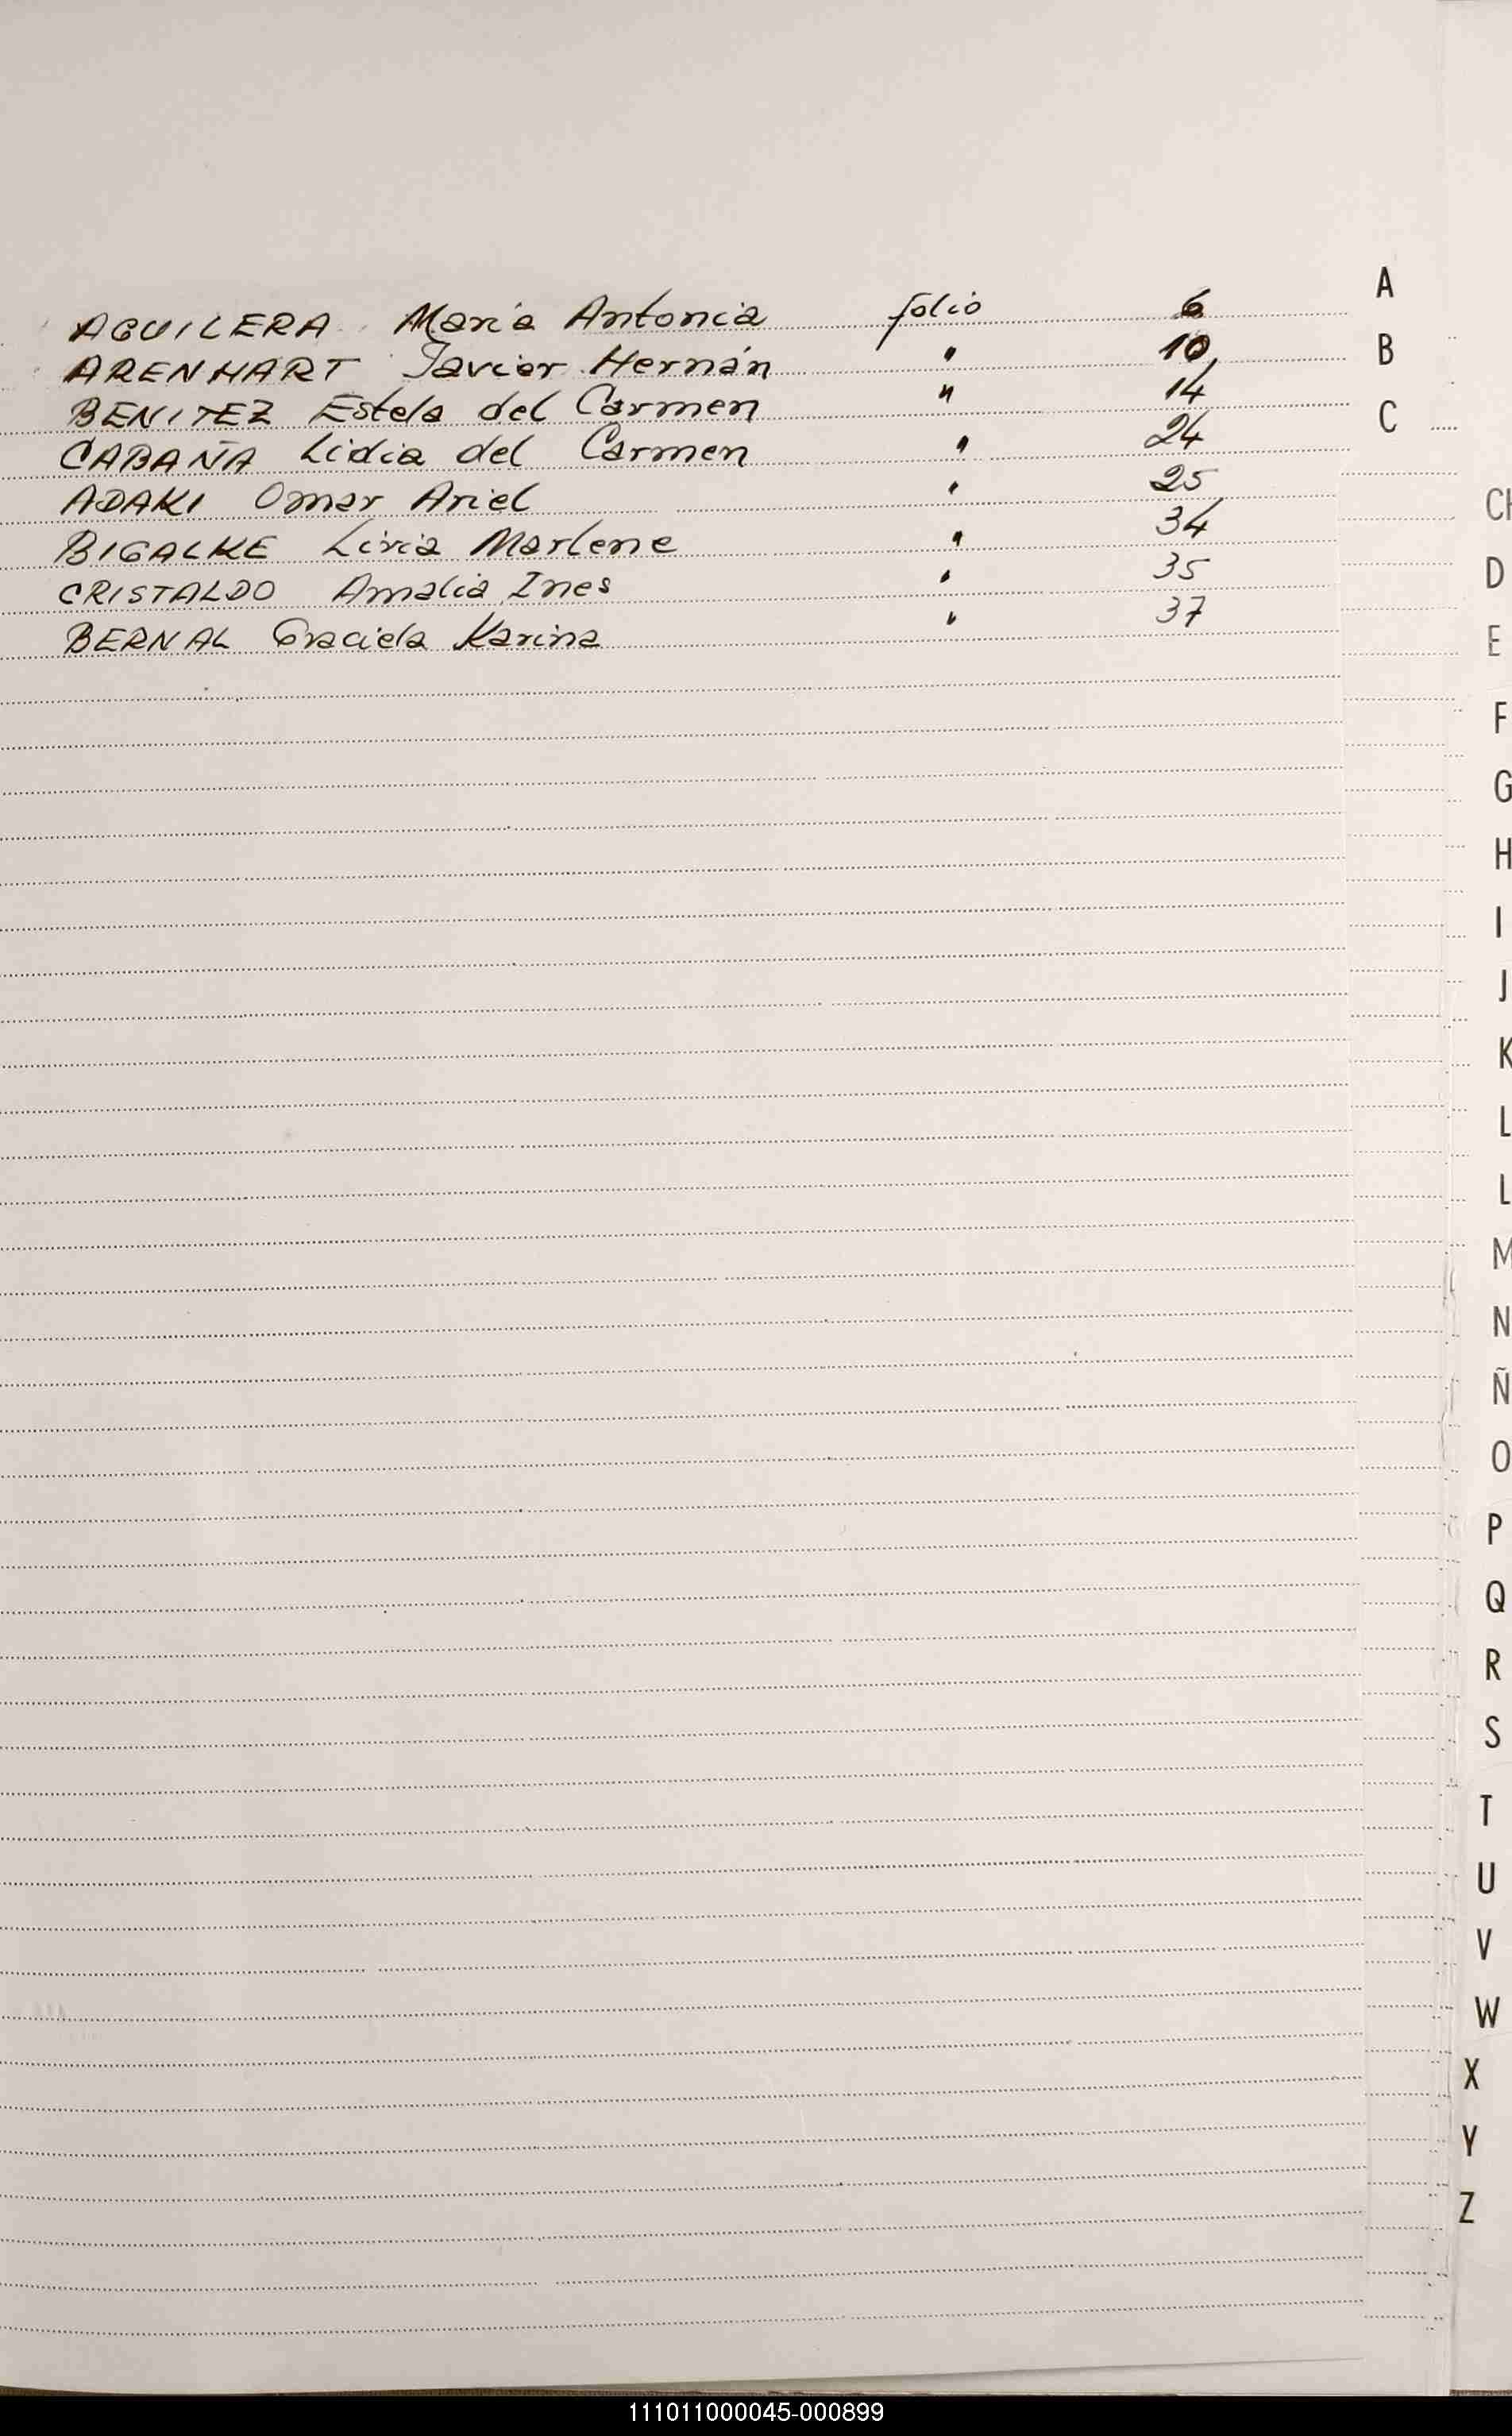 AGUILERA María Antonia folio 6
ARENHART Javier Hernán " 10
BENITEZ Estela del Carmen " 14
CABAÑA Lidia del Carmen " 24
ADAKI Omar Ariel " 25
BIGALKE Livia Marlene " 34
CRISTALDO Amalia Ines " 35
BERNAL Graciela Karina " 37
A
B
C
CH
D
E
F
G
H
I
J
K
L
L
M
N
Ñ
O
P
Q
R
S
T
U
V
W
X
Y
Z
111011000045-000899